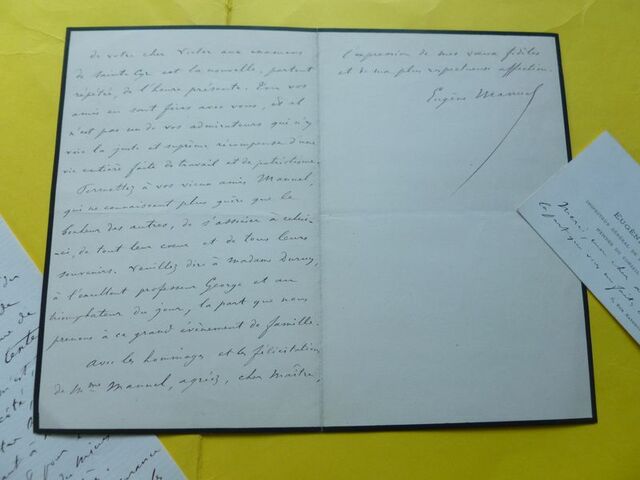 de votre cher Victor aux examens
de Saint Cyr est la nouvelle, partout
répétée, de l'heure présente. Tous vos
amis en sont fiers avec vous, et il
n'est pas un de vos admirateurs qui n'y
voie la juste et suprême récompense d'une
vie entière faite de travail et de patriotisme.
Permettez à vos vieux amis Manuel,
qui ne connaissent plus guère que le
bonheur des autres, de s'associer à celui-
ci, de tout leur cœur et de tous leurs
souvenirs. Veuillez dire à Madame Duruy,
à l'excellent professeur George et au
triomphateur du jour, la part que nous
prenons à ce grand évènement de famille.
Avec les hommages et les félicitations
de Mme Manuel, agréez, cher Maître,
l'expression de mes vœux fidèles
et de ma plus respectueuse affection.
Eugène Manuel
EUGÈN
INSPECTEUR GÉNÉRAL DE
Merci, mon cher